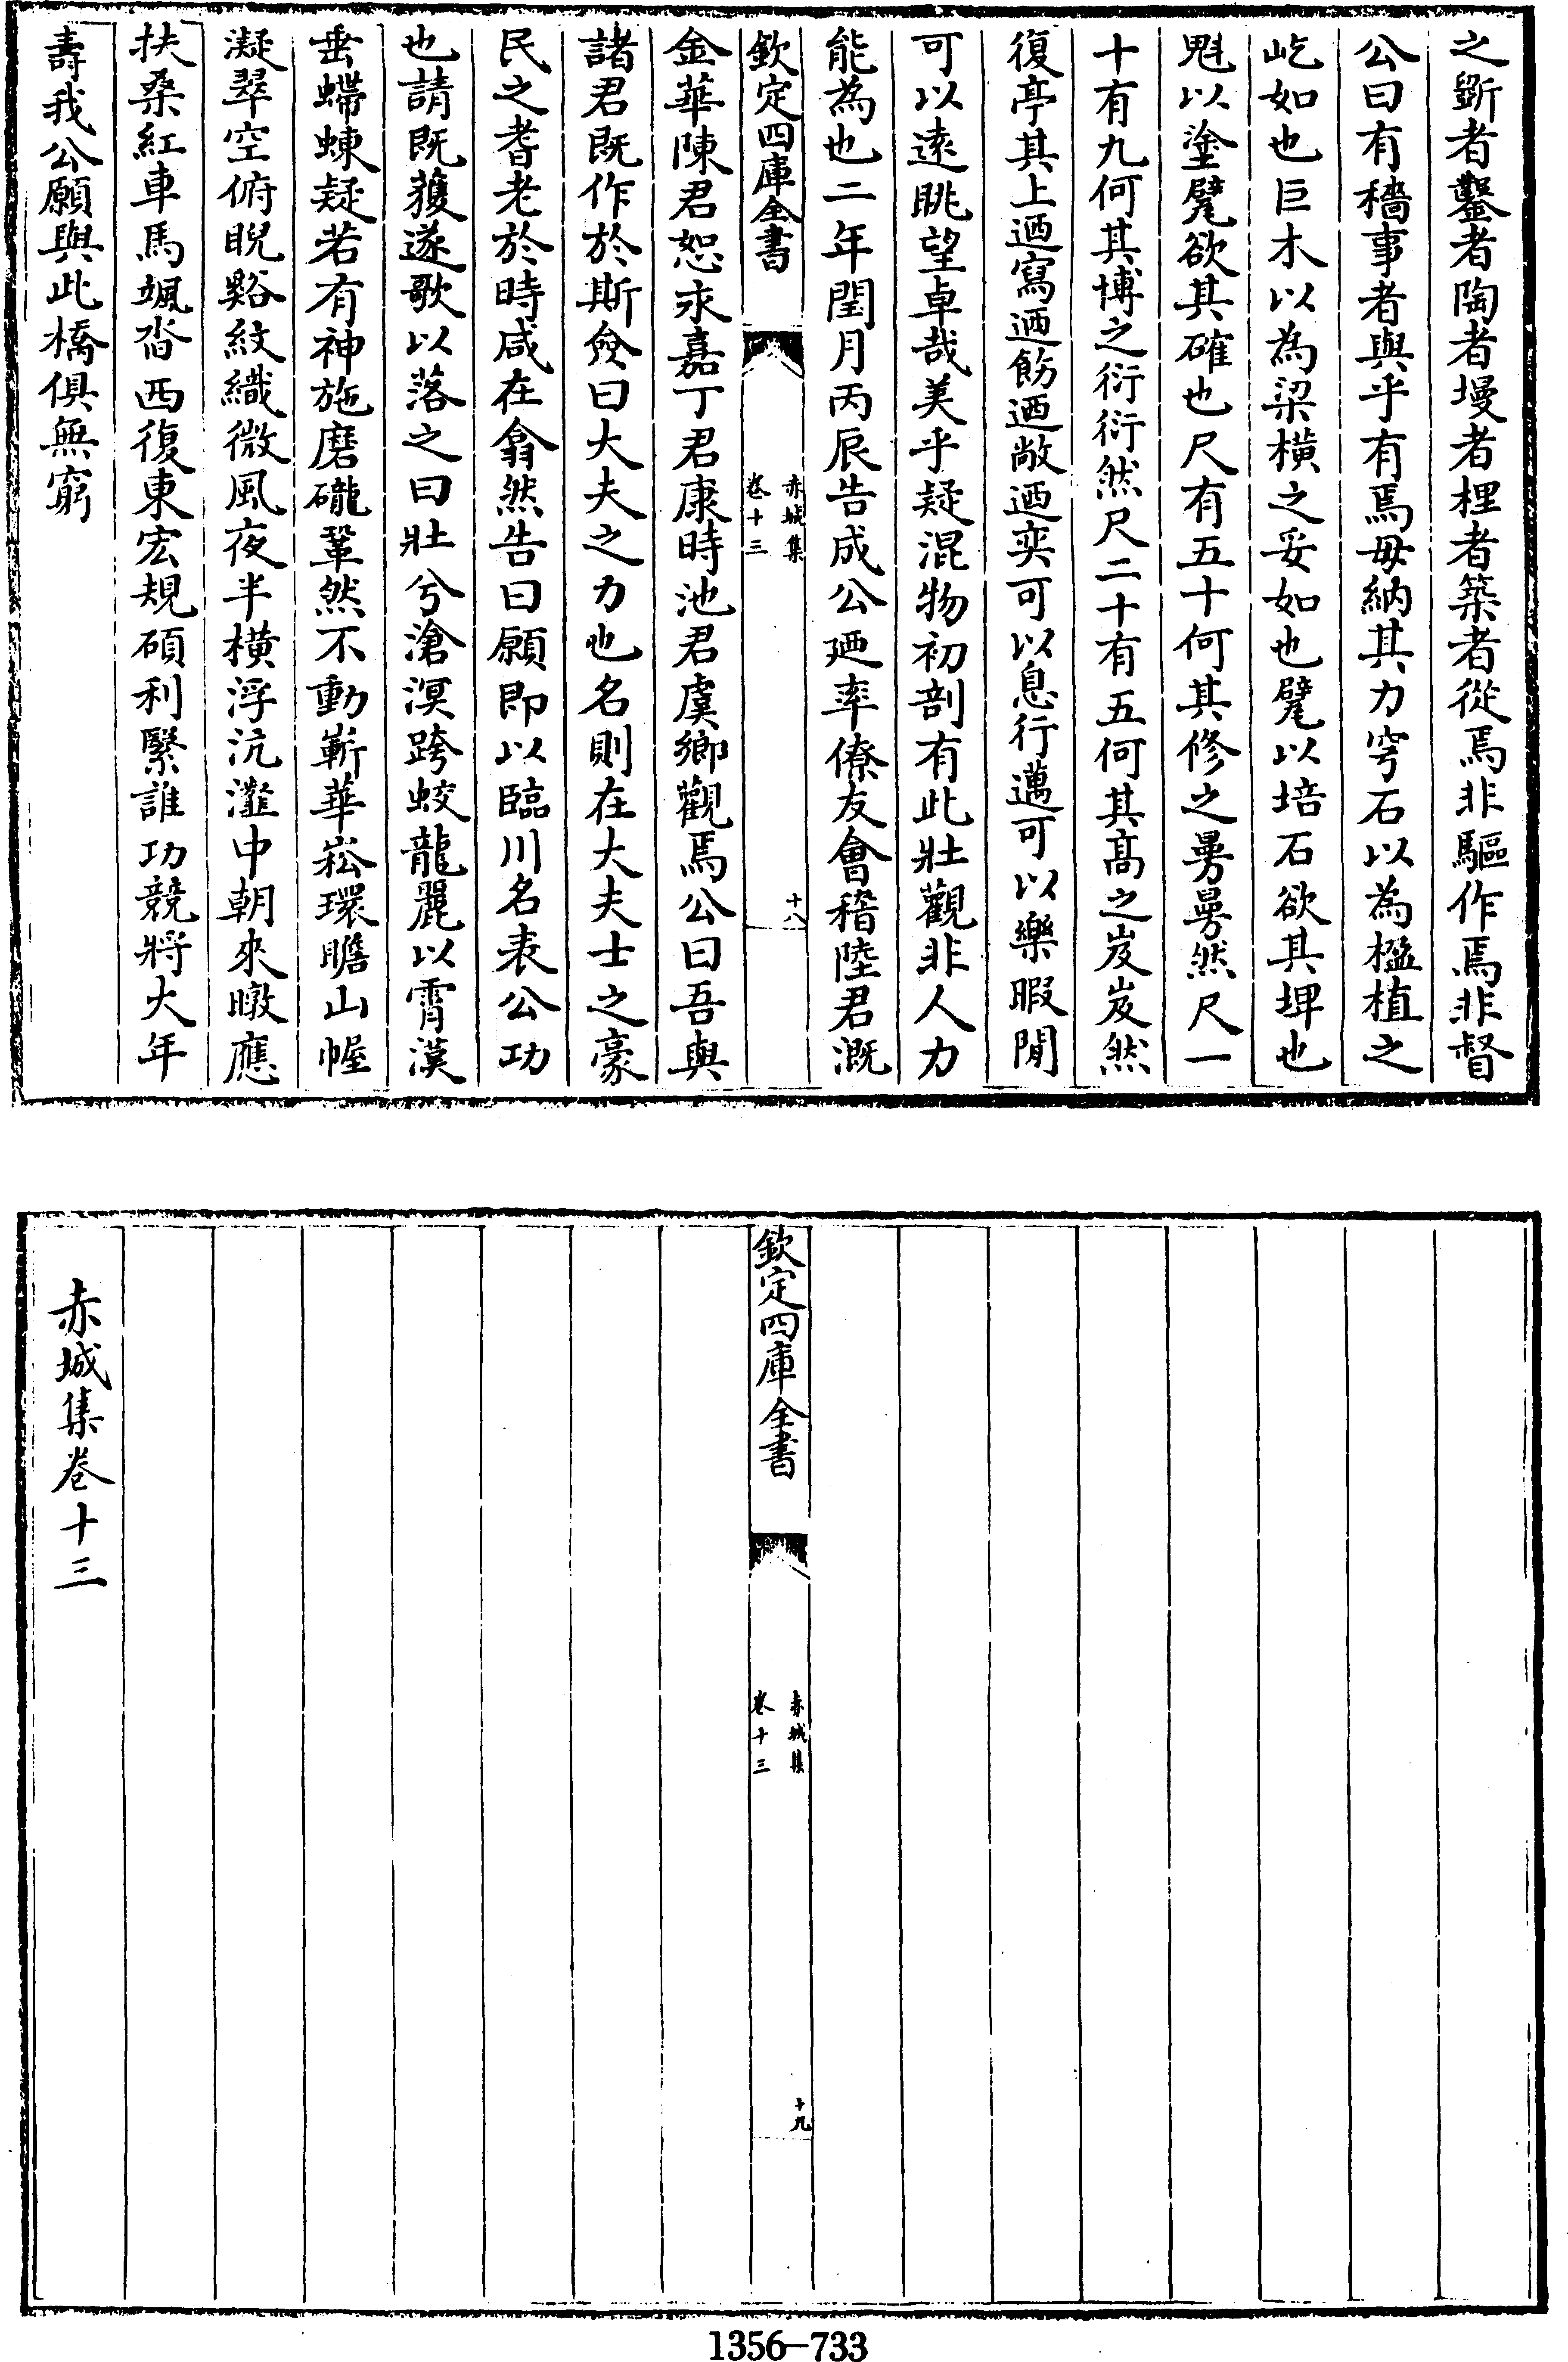 之斵者鑿者陶者墁者梩者築者從焉非驅作焉非督
公曰有穡事者與乎有焉毋納其力穹石以為楹植之
屹如也巨木以為梁橫之妥如也甓以培石欲其埤也
魁以塗甓欲其確也尺有五十何其修之曼曼然尺一
十有九何其博之衍衍然尺二十有五何其高之岌岌然
復亭其上迺寫迺飭迺敞迺奕可以息行邁可以樂暇閒
可以遠眺望卓哉美乎疑混物初剖有此壯觀非人力
能為也二年閏月丙辰告成公廼率僚友會稽陸君溉
欽定四庫全書
赤城集
卷十三
十八
金華陳君恕永嘉丁君康時池君虞卿觀焉公曰吾與
諸君既作於斯僉曰大夫之力也名則在大夫士之豪
民之耆老於時咸在翕然告曰願即以臨川名表公功
也請既獲遂歌以落之曰壯兮滄溟跨蛟龍麗以霄漢
垂螮蝀疑若有神施磨礲鞏然不動嶄華崧環瞻山幄
凝翠空俯睨谿紋織微風夜半橫浮沆瀣中朝來暾應
扶桑紅車馬颯沓西復東宏規碩利繄誰功競將大年
壽我公願與此橋俱無窮
欽定四庫全書
赤城集
卷十三
十九
赤城集卷十三
1356-733